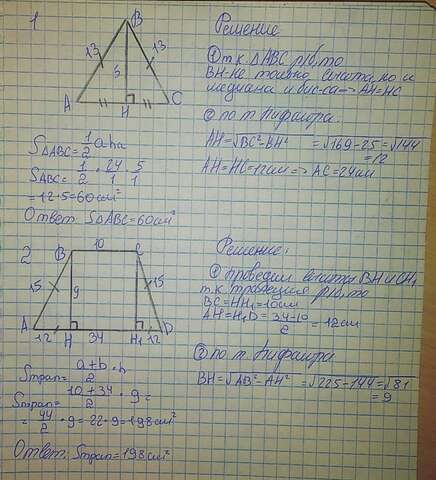 1
B
13
13
5
A
H
C
Решение
① т.к. △ABC р/б, то
BH-не только высота, но и
медиана и бис-са → AH=HC
② по т. Пифагора.
AH=√BC²-BH² = √169-25 = √144
=12
AH=HC=12см => AC=24см
S△ABC = 1/2 a·ha
SABC = 1/2 · 24/1 · 5/1
=12·5=60см²
Ответ: S△ABC=60см²
2
B
10
C
15
9
15
A
12
H
34
H₁
12
D
Решение:
① проведём высоты BH и CH₁
т.к. трапеция р/б, то
BC=HH₁=10см
AH=H₁D= 34-10/2 =12см
② по т. Пифагора
BH=√AB²-AH² =√225-144=√81
=9
Sтрап= a+b/2 · h
Sтрап= 10+34/2 · 9 =
= 44/2 · 9 = 22·9=198см²
Ответ: Sтрап=198см²